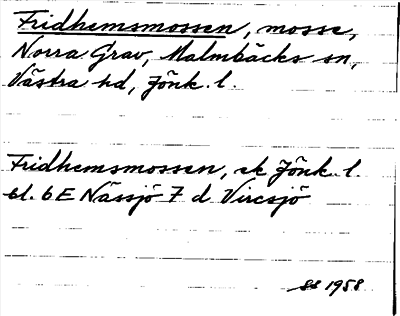 Fridhemsmossen, mosse,
Norra Grav, Malmbäcks sn,
Västra hd, Jönk. l.
Fridhemsmossen, ek Jönk. l.
bl. 6E Nässjö 7 d Vircsjö
1958